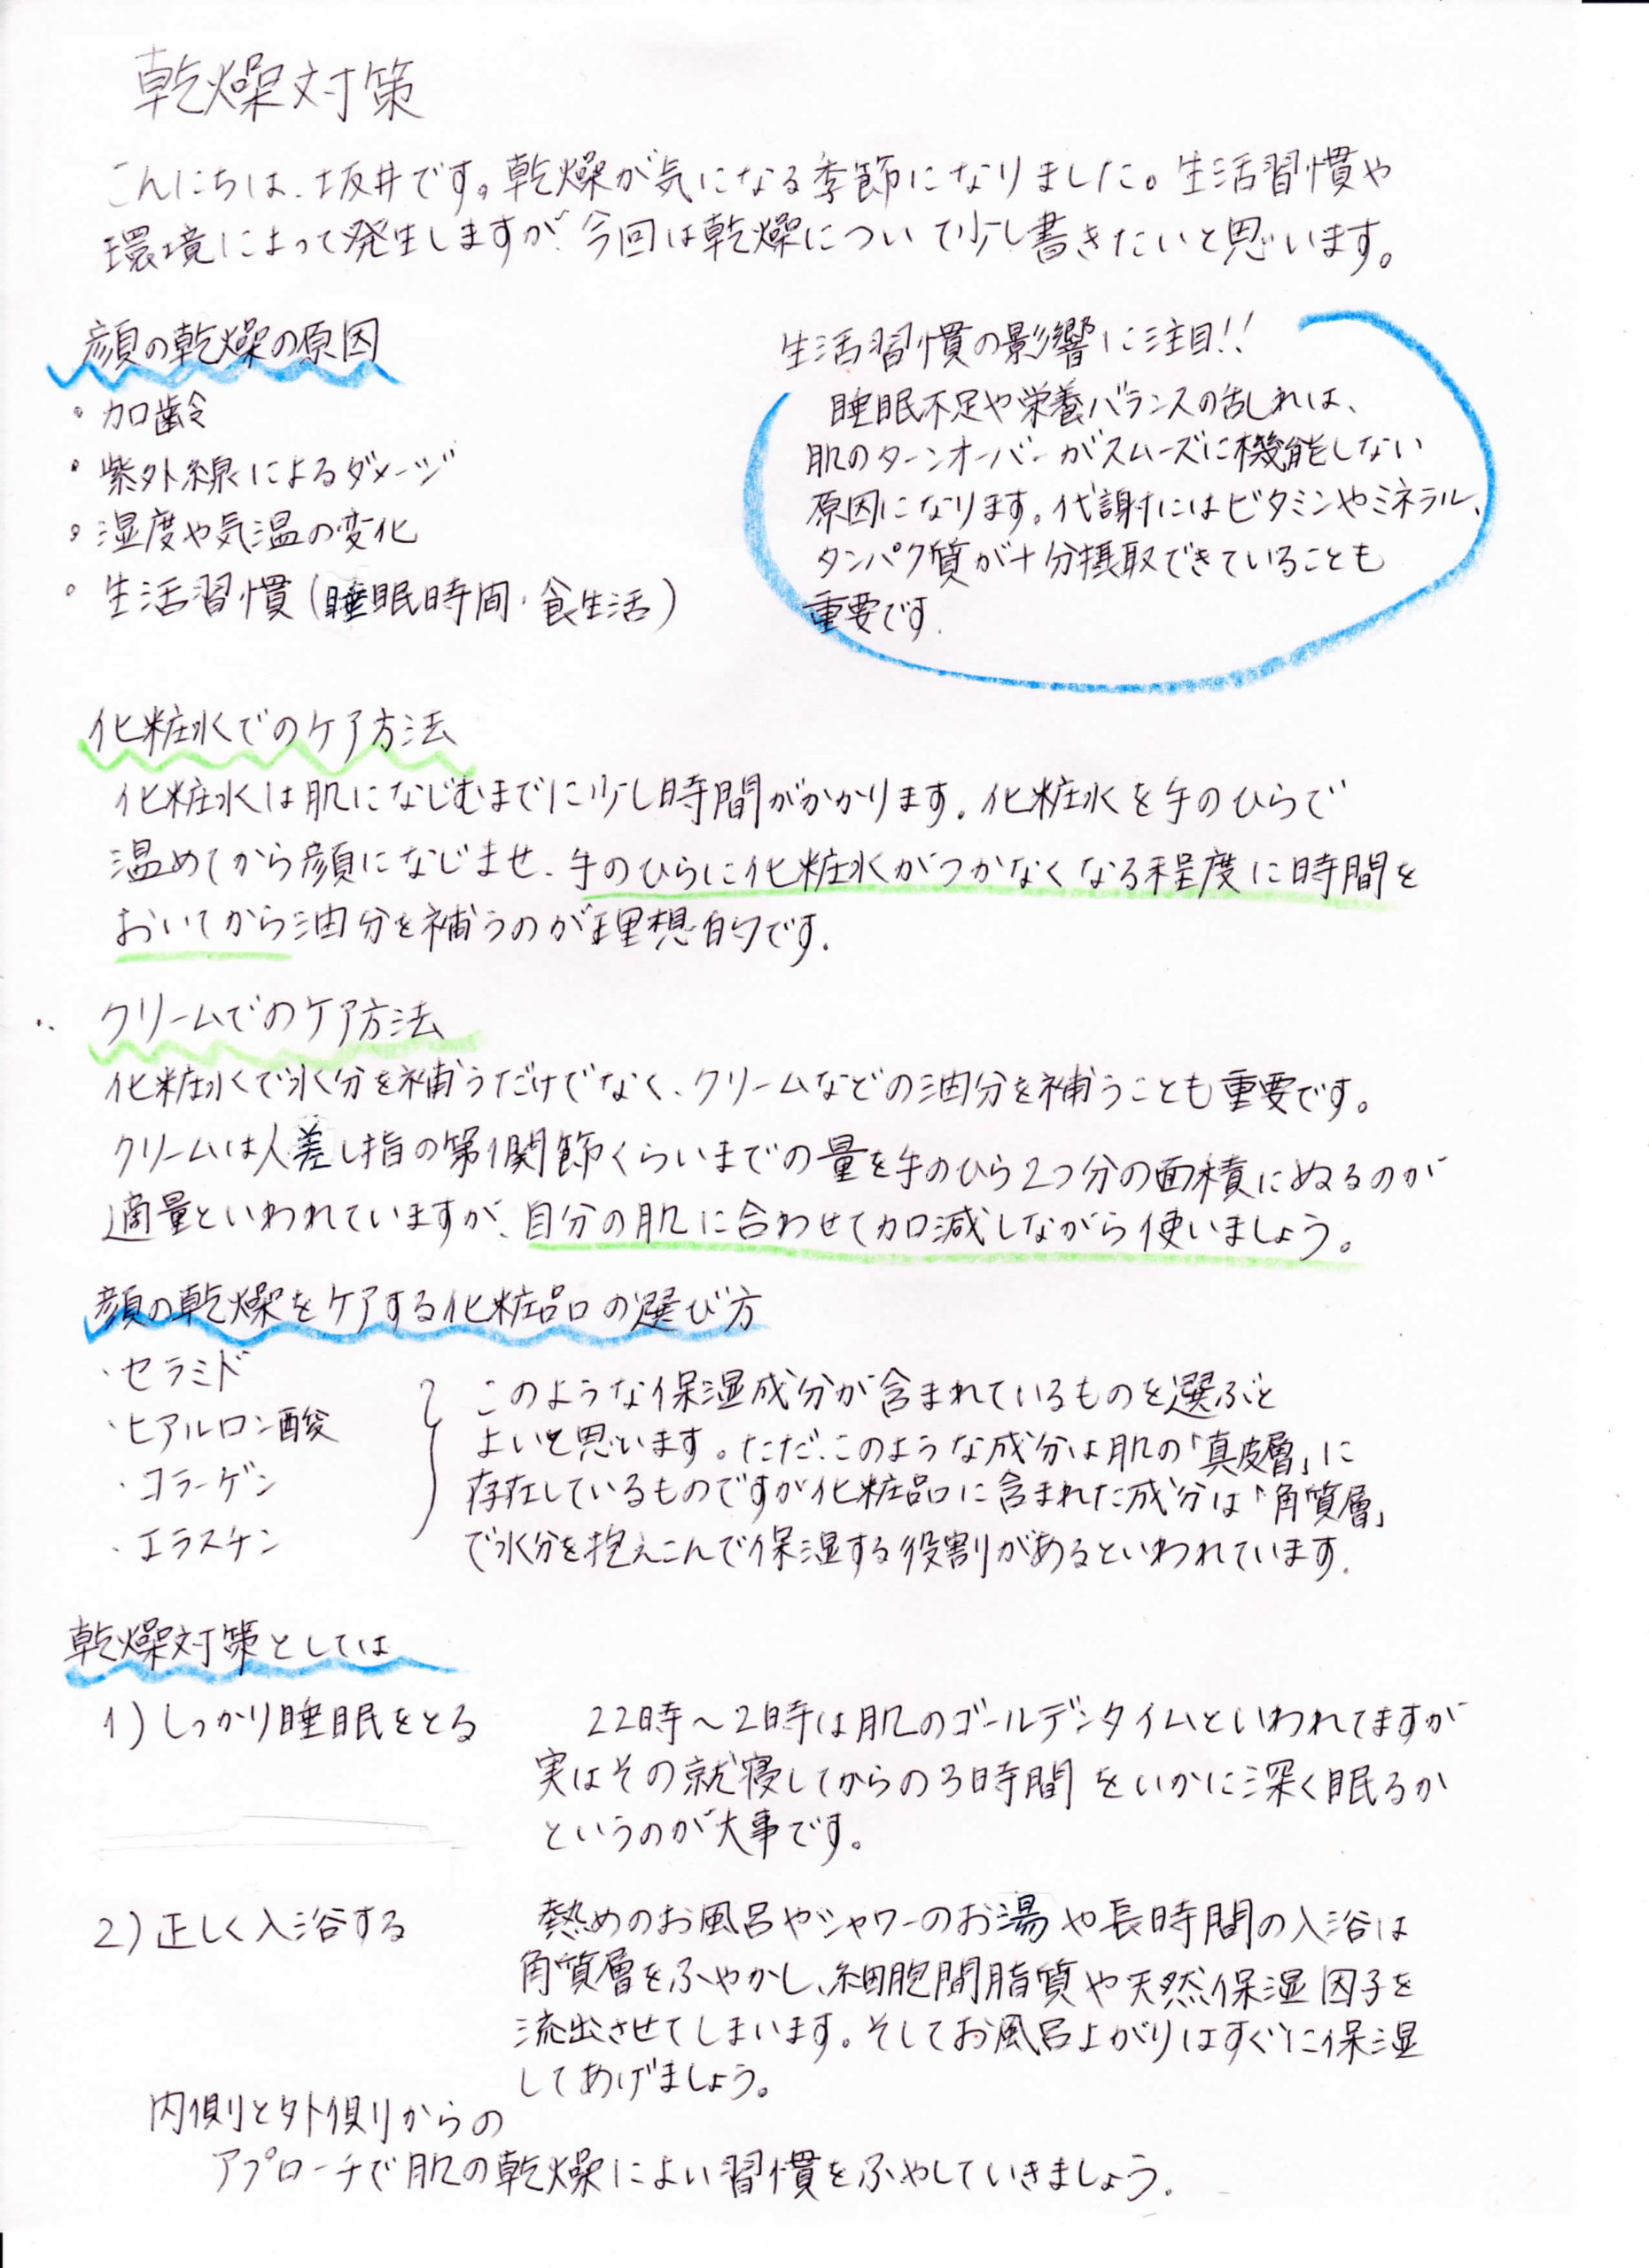 乾燥対策
こんにちは、坂井です。乾燥が気になる季節になりました。生活習慣や
環境によって発生しますが、今回は乾燥について少し書きたいと思います。
顔の乾燥の原因
・加齢
・紫外線によるダメージ
・湿度や気温の変化
・生活習慣(睡眠時間・食生活)
生活習慣の影響に注目!!
睡眠不足や栄養バランスの乱れは、
肌のターンオーバーがスムーズに機能しない
原因になります。代謝にはビタミンやミネラル、
タンパク質が十分摂取できていることも
重要です.
化粧水でのケア方法
化粧水は肌になじむまでに少し時間がかかります。化粧水を手のひらで
温めてから顔になじませ、手のひらに化粧水がつかなくなる程度に時間を
おいてから油分を補うのが理想的です.
クリームでのケア方法
化粧水で水分を補うだけでなく、クリームなどの油分を補うことも重要です。
クリームは人差し指の第1関節くらいまでの量を手のひら2つ分の面積にぬるのが
適量といわれていますが、自分の肌に合わせて加減しながら使いましょう。
顔の乾燥をケアする化粧品の選び方
・セラミド
・ヒアルロン酸
・コラーゲン
・エラスチン
このような保湿成分が含まれているものを選ぶと
よいと思います。ただ、このような成分は肌の「真皮層」に
存在しているものですが化粧品に含まれた成分は「角質層」
で水分を抱えこんで保湿する役割があるといわれています.
乾燥対策としては
1)しっかり睡眠をとる
22時〜2時は肌のゴールデンタイムといわれてますが
実はその就寝してからの3時間をいかに深く眠るか
というのが大事です。
2)正しく入浴する
熱めのお風呂やシャワーのお湯や長時間の入浴は
角質層をふやかし、細胞間脂質や天然保湿因子を
流出させてしまいます。そしてお風呂上がりはすぐに保湿
してあげましょう。
内側と外側からの
アプローチで肌の乾燥によい習慣をふやしていきましょう.